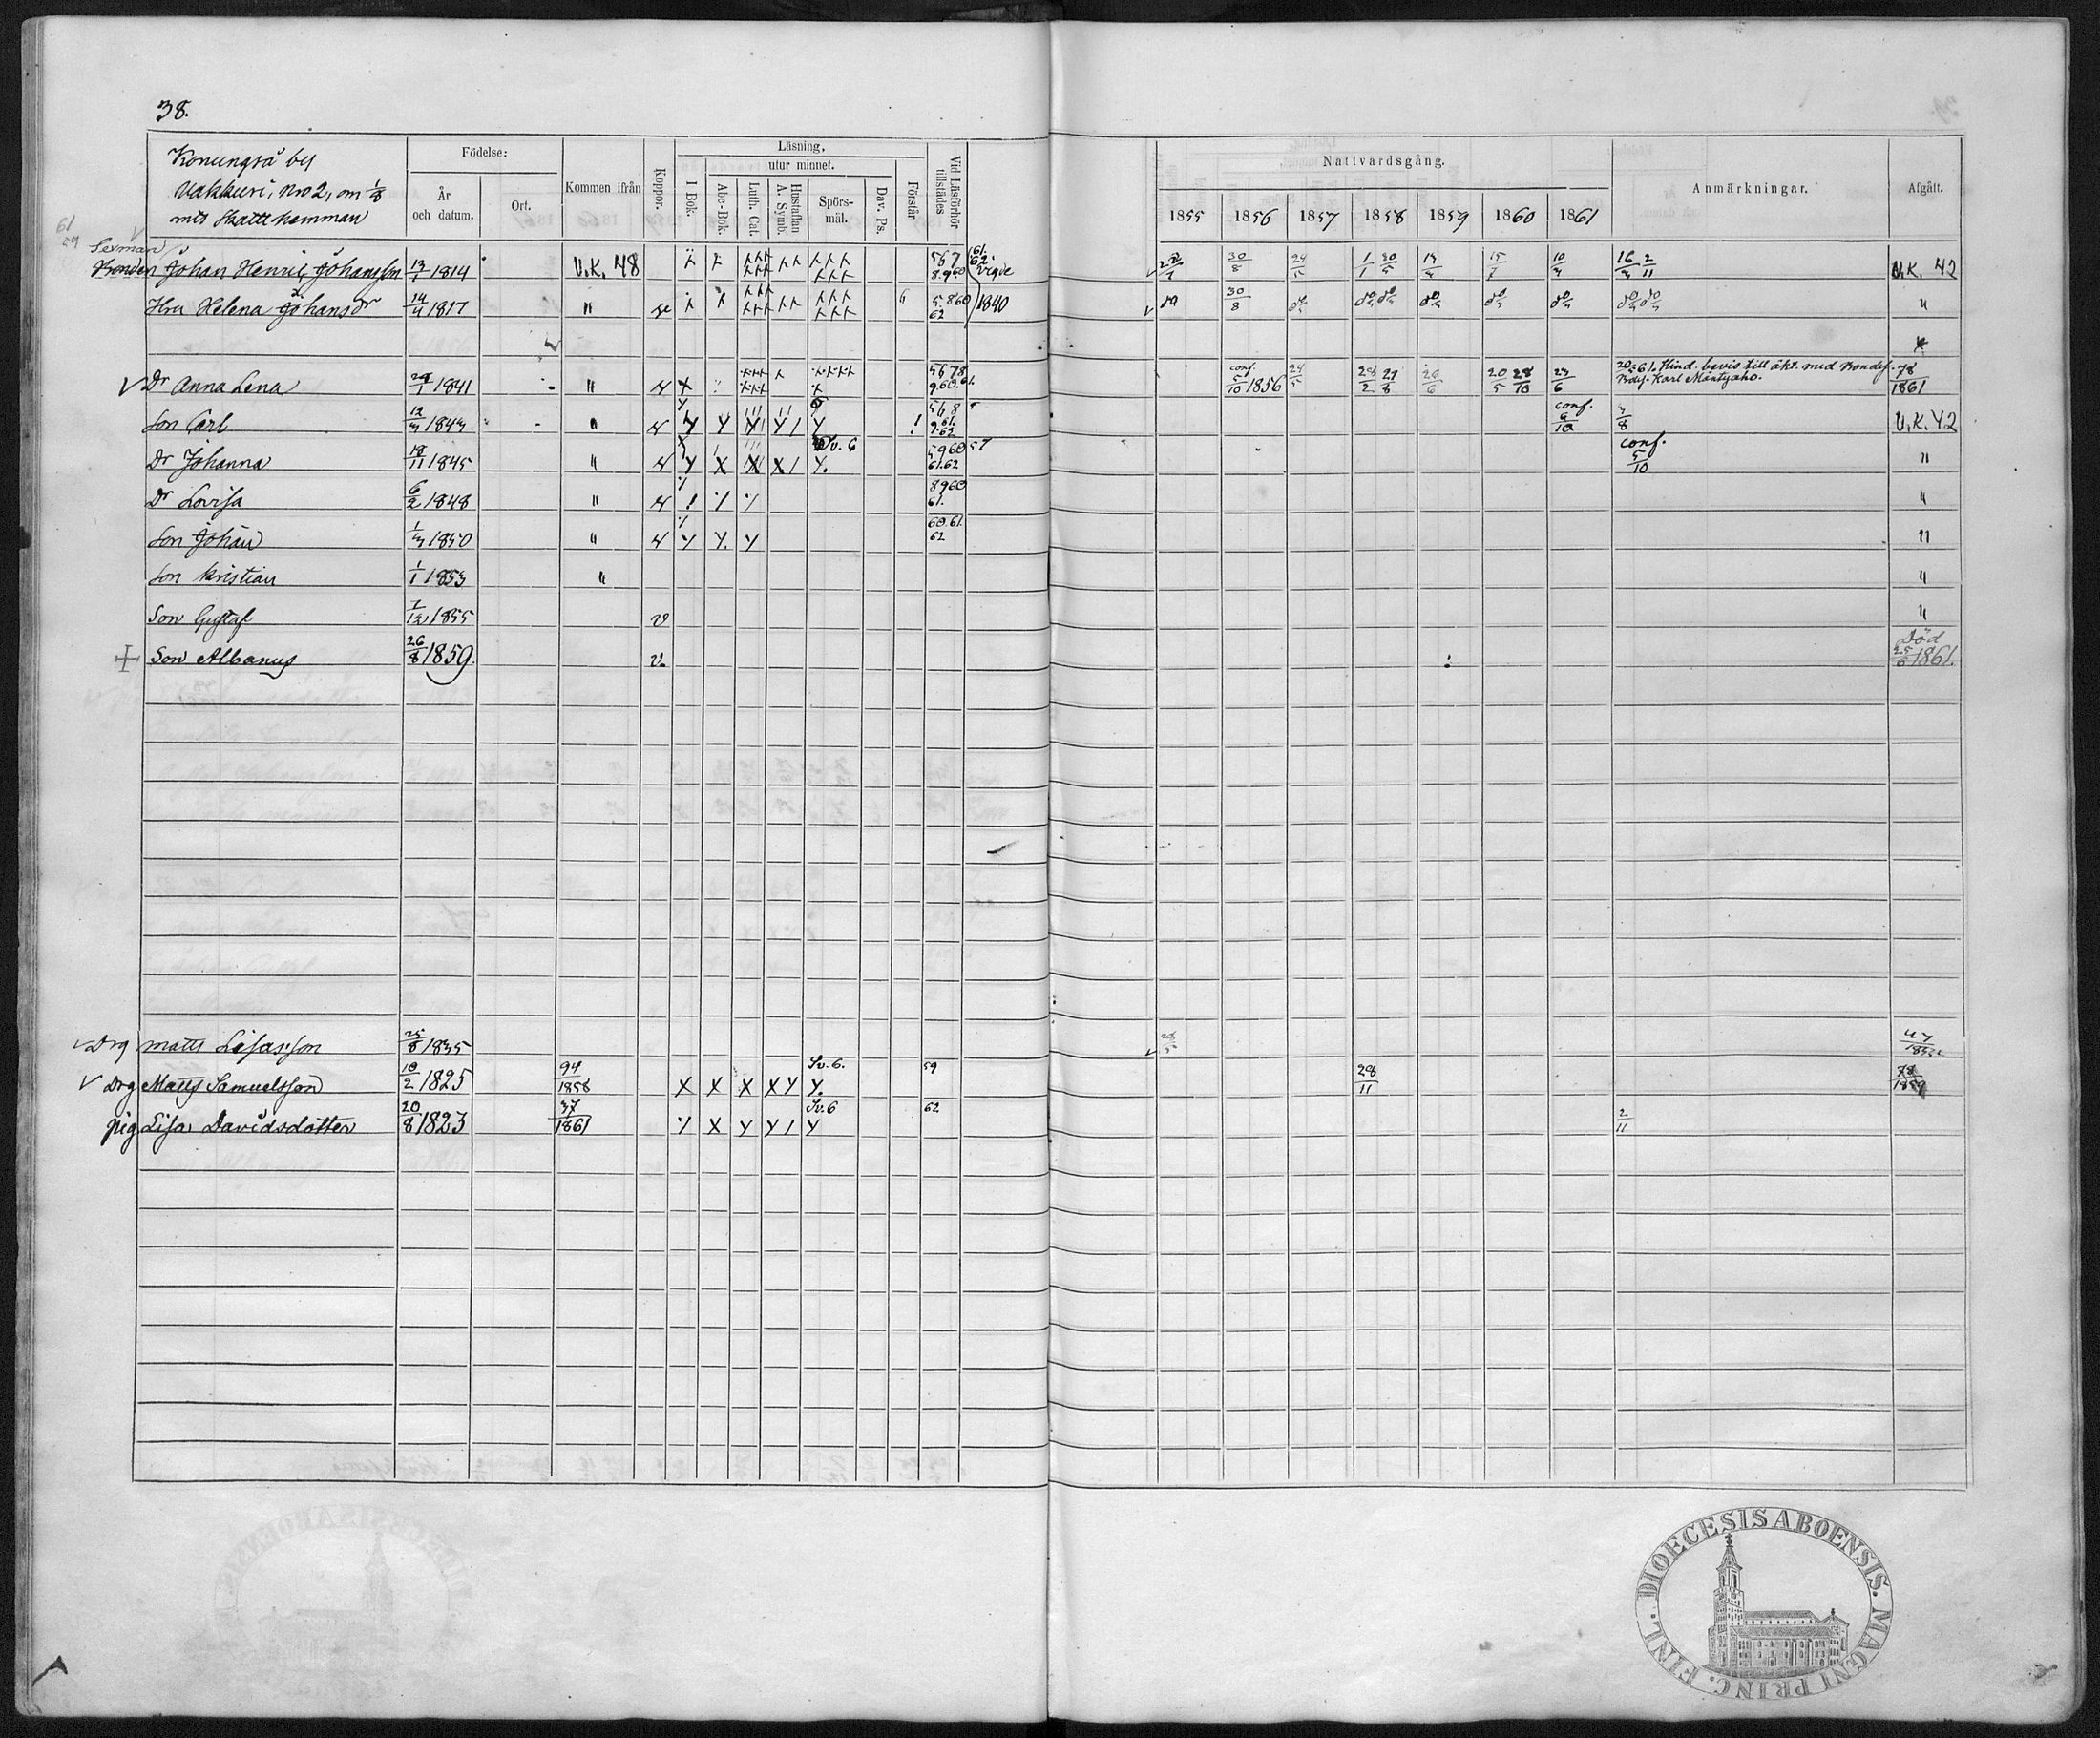 38.
Konungså by
Vakkuri, Nro 2, om 1/8
mtl Skatte hemman
Födelse:
År och datum.
Ort.
Kommen ifrån
Koppor.
Läsning,
I Bok.
utur minnet.
Abc-Bok.
Luth. Cat.
Hustaflan A. Symb.
Spörs-mål.
Dav. Ps.
Förstår
Vid Läsförhör tillstädes
Nattvardsgång.
1855 1856 1857 1858 1859 1860 1861
Anmärkningar.
Afgått.
61
59
Sexman
Bonden Johan Henrik Johansson 13/1 1814 V.K. 48 567 8.960 61. 62. Vigde 30/8 24/5 1/1 30/5 10/4 16/3 2/11 V.K. 42
Hru Helena Johansdr 14/4 1817 " 5.860 62 1840 do 30/8 do do do do do do do do "
Dr Anna Lena 1841 " 5678 960.61. conf. 5/10 1856 24/5 28/2 29/8 26/6 20/5 28/10 23/6 20/3 61. Hind. bevis till äkt. med Bondes. Karl Mäntyaho. 78/1861
Son Carl 12/3 1843 " 568 9.61. 62 conf. 6/10 3/8 V.K. 42
Dr Johanna 18/11 1845 " Sv. 6 5960 61.62 57 conf. 5/10 "
Dr Lovisa 6/2 1848 " 8960 61. "
Son Johan 1/3 1850 " 60.61. 62 "
Son Kristian 1/1 1853 " "
Son Gustaf 7/12 1855 v "
+ Son Albanus 26/8 1859. v. Död 25/6 1861.
Drg Matts Lisasson 25/8 1835
Drg Matts Samuelsson 18/2 1825 94/1858 X X X X Y Y. Sv. 6. 59 28/11 78/1859
pig Lisa Davidsdotter 20/8 1823 37/1861 X Y Y / Y Sv. 6 62 2/11
FINL. DIOECESIS ABOENSIS. MAGNI PRINC.